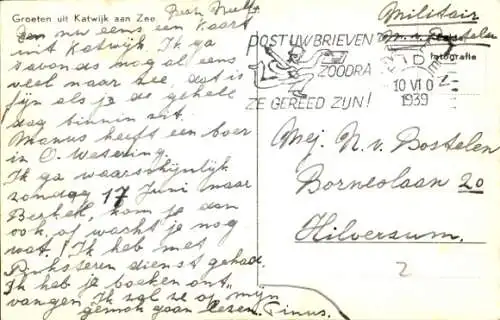 Groeten uit Katwijk aan Zee.
Beste Nelly
Zoo nu eens een kaart
uit Katwijk. Ik ga
savonds nog al eens
veel naar zee, dat is
fijn als je de geheele
dag binnen zit.
Manus heeft een boer
in O. Wetering
Ik ga waarschijnlijk
zondag 17 Juni naar
Berkel, kom je dan
ook, of wacht je nog
wat. Ik heb met
Pinksteren dienst gehad.
Ik heb je boeken ont-
vangen Ik zal ze op mijn
gemak gaan lezen. Tinus.
Militair
M. v. Bostelen
fotografie
POST UW BRIEVEN
ZOODRA
ZE GEREED ZIJN!
10 VI
1939
Mej. N. v. Bostelen
Borneolaan 20
Hilversum.
2